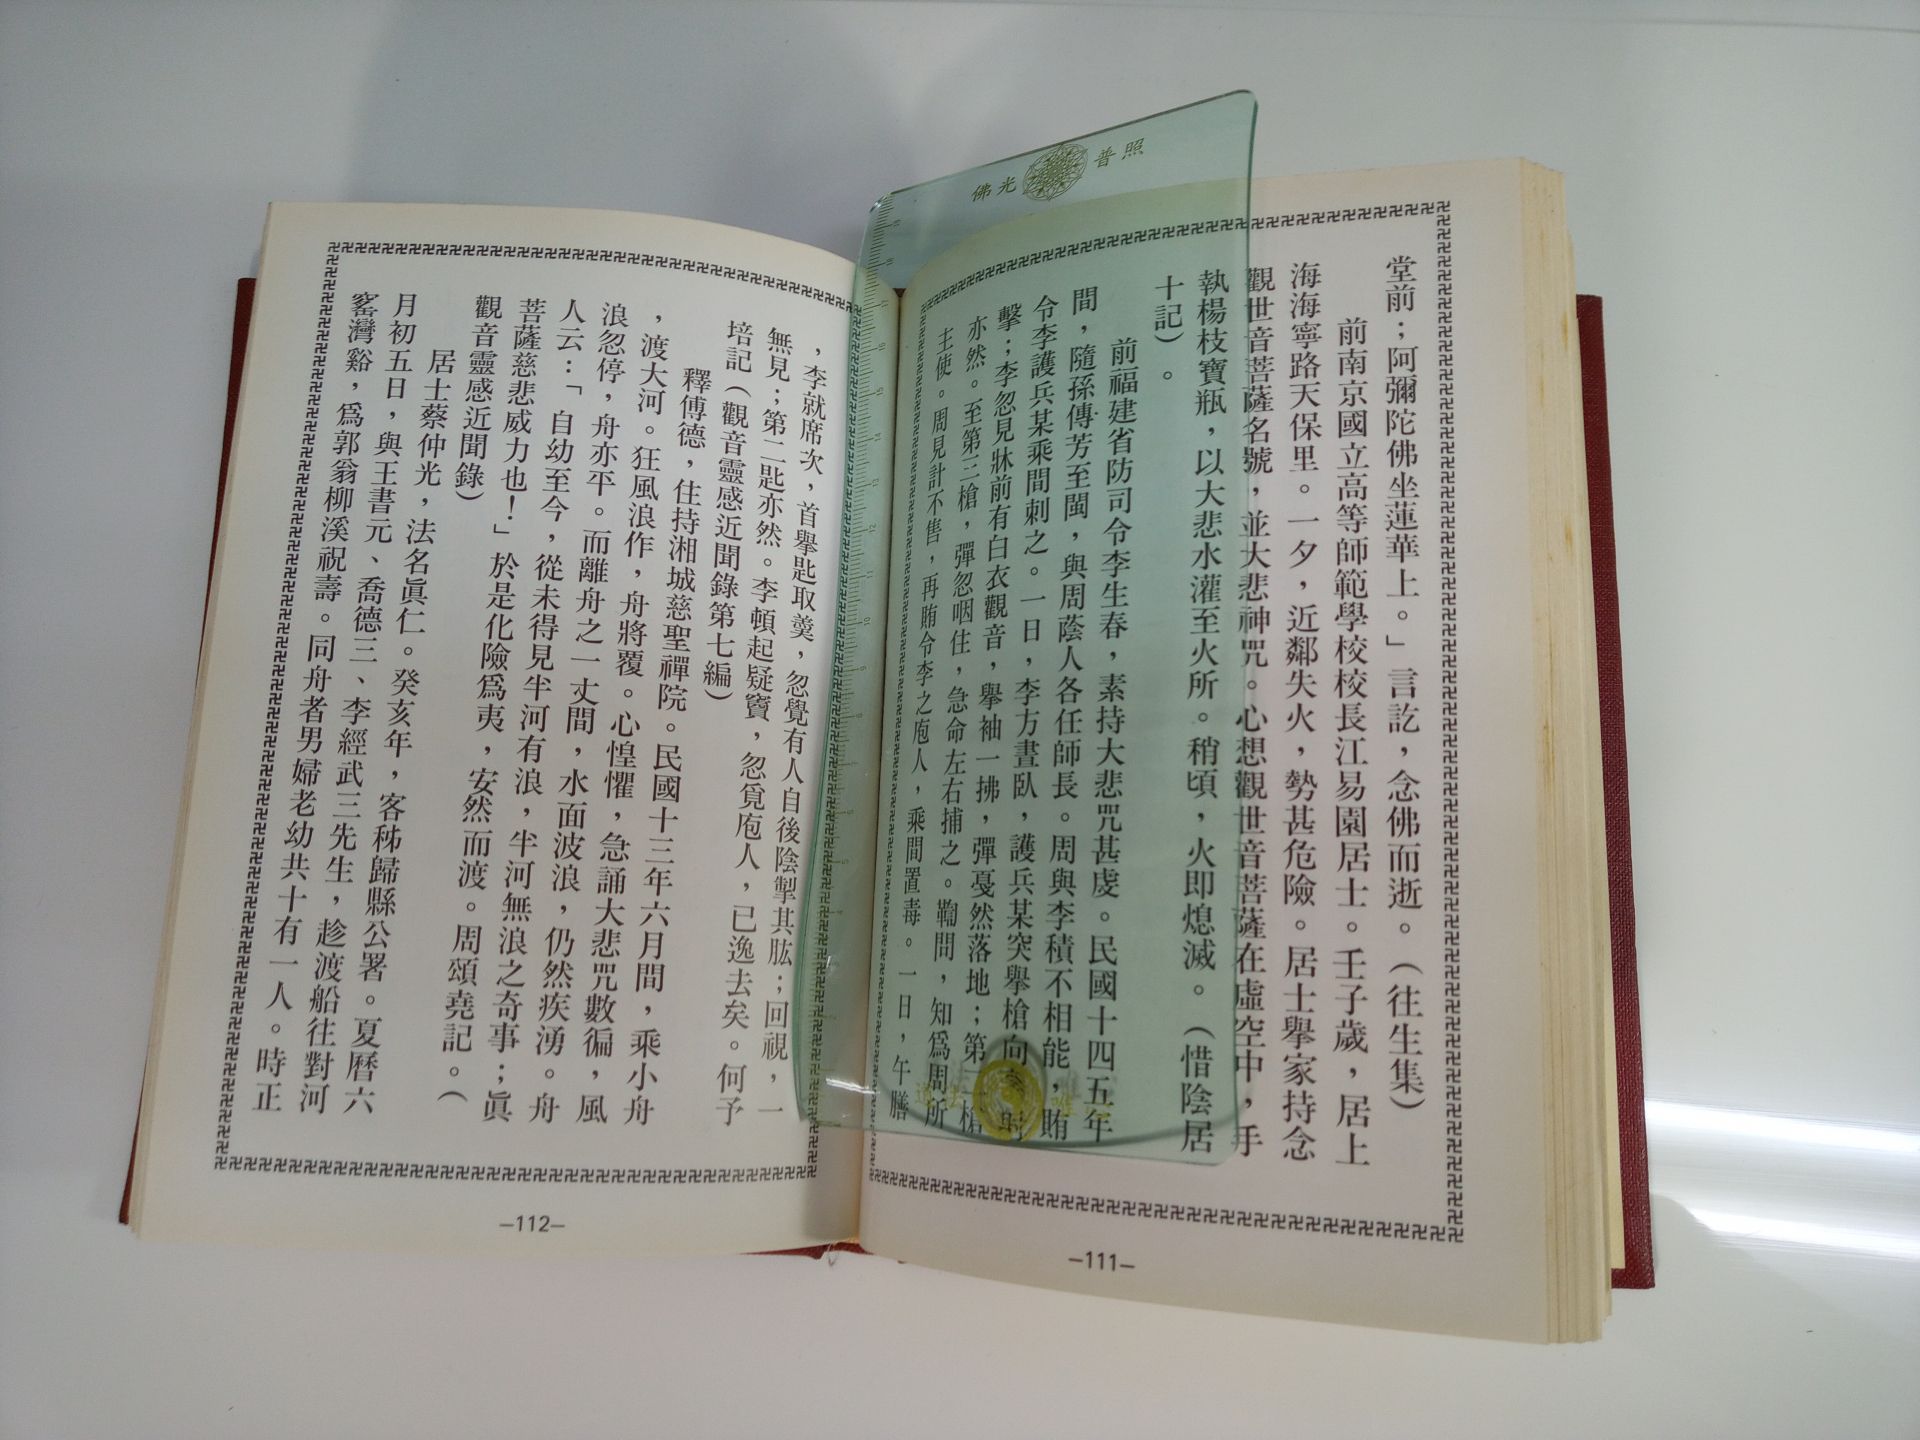 佛光普照
堂前；阿彌陀佛坐蓮華上。」言訖，念佛而逝。（往生集）
前南京國立高等師範學校校長江易園居士。壬子歲，居上
海海寧路天保里。一夕，近鄰失火，勢甚危險。居士舉家持念
觀世音菩薩名號，並大悲神咒。心想觀世音菩薩在虛空中，手
執楊枝寶瓶，以大悲水灌至火所。稍頃，火即熄滅。（惜陰居
十記）。
前福建省防司令李生春，素持大悲咒甚虔。民國十四五年
間，隨孫傳芳至閩，與周蔭人各任師長。周與李積不相能，賄
令李護兵某乘間刺之。一日，李方晝臥，護兵某突舉槍向射
擊；李忽見牀前有白衣觀音，舉袖一拂，彈戞然落地；第二槍
亦然。至第三槍，彈忽咽住，急命左右捕之。鞫問，知爲周所
主使。周見計不售，再賄令李之庖人，乘間置毒。一日，午膳
—111—
，李就席次，首擧匙取羹，忽覺有人自後陰掣其肱；回視，一
無見；第二匙亦然。李頓起疑竇，忽覓庖人，已逸去矣。何予
培記（觀音靈感近聞錄第七編）
釋傅德，住持湘城慈聖禪院。民國十三年六月間，乘小舟
，渡大河。狂風浪作，舟將覆。心惶懼，急誦大悲咒數徧，風
浪忽停，舟亦平。而離舟之一丈間，水面波浪，仍然疾湧。舟
人云：「自幼至今，從未得見半河有浪，半河無浪之奇事；眞
菩薩慈悲威力也！」於是化險爲夷，安然而渡。周頌堯記。（
觀音靈感近聞錄）
居士蔡仲光，法名眞仁。癸亥年，客秭歸縣公署。夏曆六
月初五日，與王書元、喬德三、李經武三先生，趁渡船往對河
窰灣谿，爲郭翁柳溪祝壽。同舟者男婦老幼共十有一人。時正
—112—